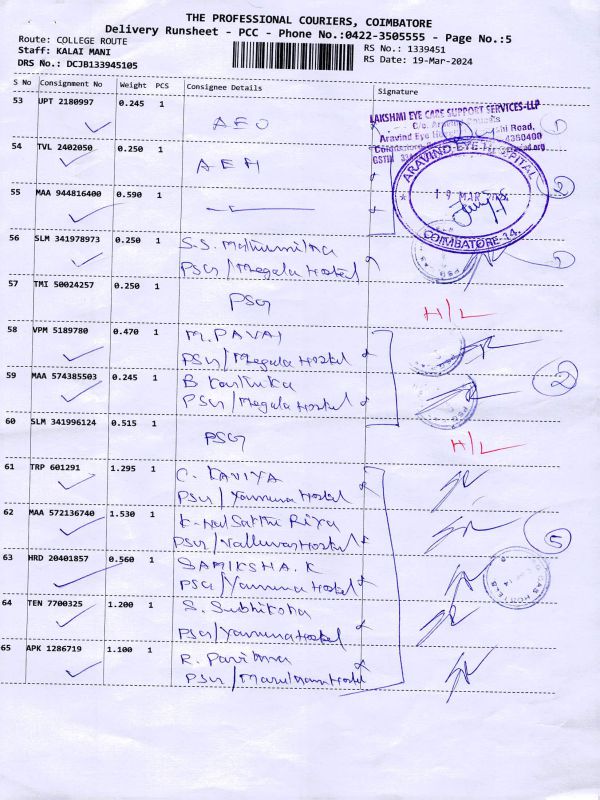 THE PROFESSIONAL COURIERS, COIMBATORE
Delivery Runsheet - PCC - Phone No.:0422-3505555 - Page No.:5
Route: COLLEGE ROUTE
Staff: KALAI MANI
DRS No.: DCJB133945105
RS No.: 1339451
RS Date: 19-Mar-2024
S No Consignment No Weight PCS Consignee Details Signature
53 UPT 2180997 0.245 1 AEO
LAKSHMI EYE CARE SUPPORT SERVICES-LLP
C/o. Aravind
Aravind Eye Road,
①
54 TVL 2402050 0.250 1 AEH
ARAVIND-EYE-HOSPITAL
19 MAR
COIMBATORE-14.
②
55 MAA 944816400 0.590 1
56 SLM 341978973 0.250 1 S.S. Mathumitha
PSG/Megala Hostel
①
57 TMI 50024257 0.250 1 PSG H/L
58 VPM 5189780 0.470 1 M. PAVAI
PSG/Megala Hostel
59 MAA 574385503 0.245 1 B Karthika
PSG/Megala Hostel
②
60 SLM 341996124 0.515 1 PSG H/L
61 TRP 601291 1.295 1 C. KAVIYA
PSG/Yamuna Hostel
62 MAA 572136740 1.530 1 Riya
PSG/Valluvar Hostel
⑤
63 HRD 20401857 0.560 1 SAMIKSHA.K
PSG/Yamuna Hostel
64 TEN 7700325 1.200 1 S. Subhiksha
PSG/Yamuna Hostel
65 APK 1286719 1.100 1 R. Pavithra
PSG/ Hostel